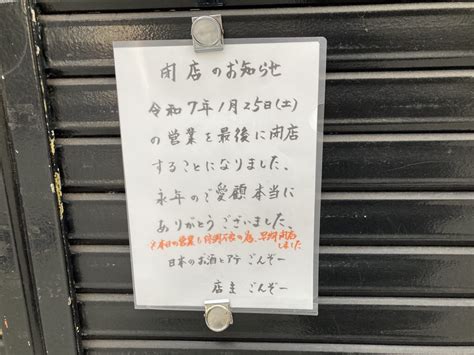 閉店のお知らせ
令和7年1月25日(土)
の営業を最後に閉店
することになりました。
永年のご愛顧本当に
ありがとうございました。
※本日の営業も の為、早期閉店
しました
日本のお酒とアテ ごんぞー
店主 ごんぞー